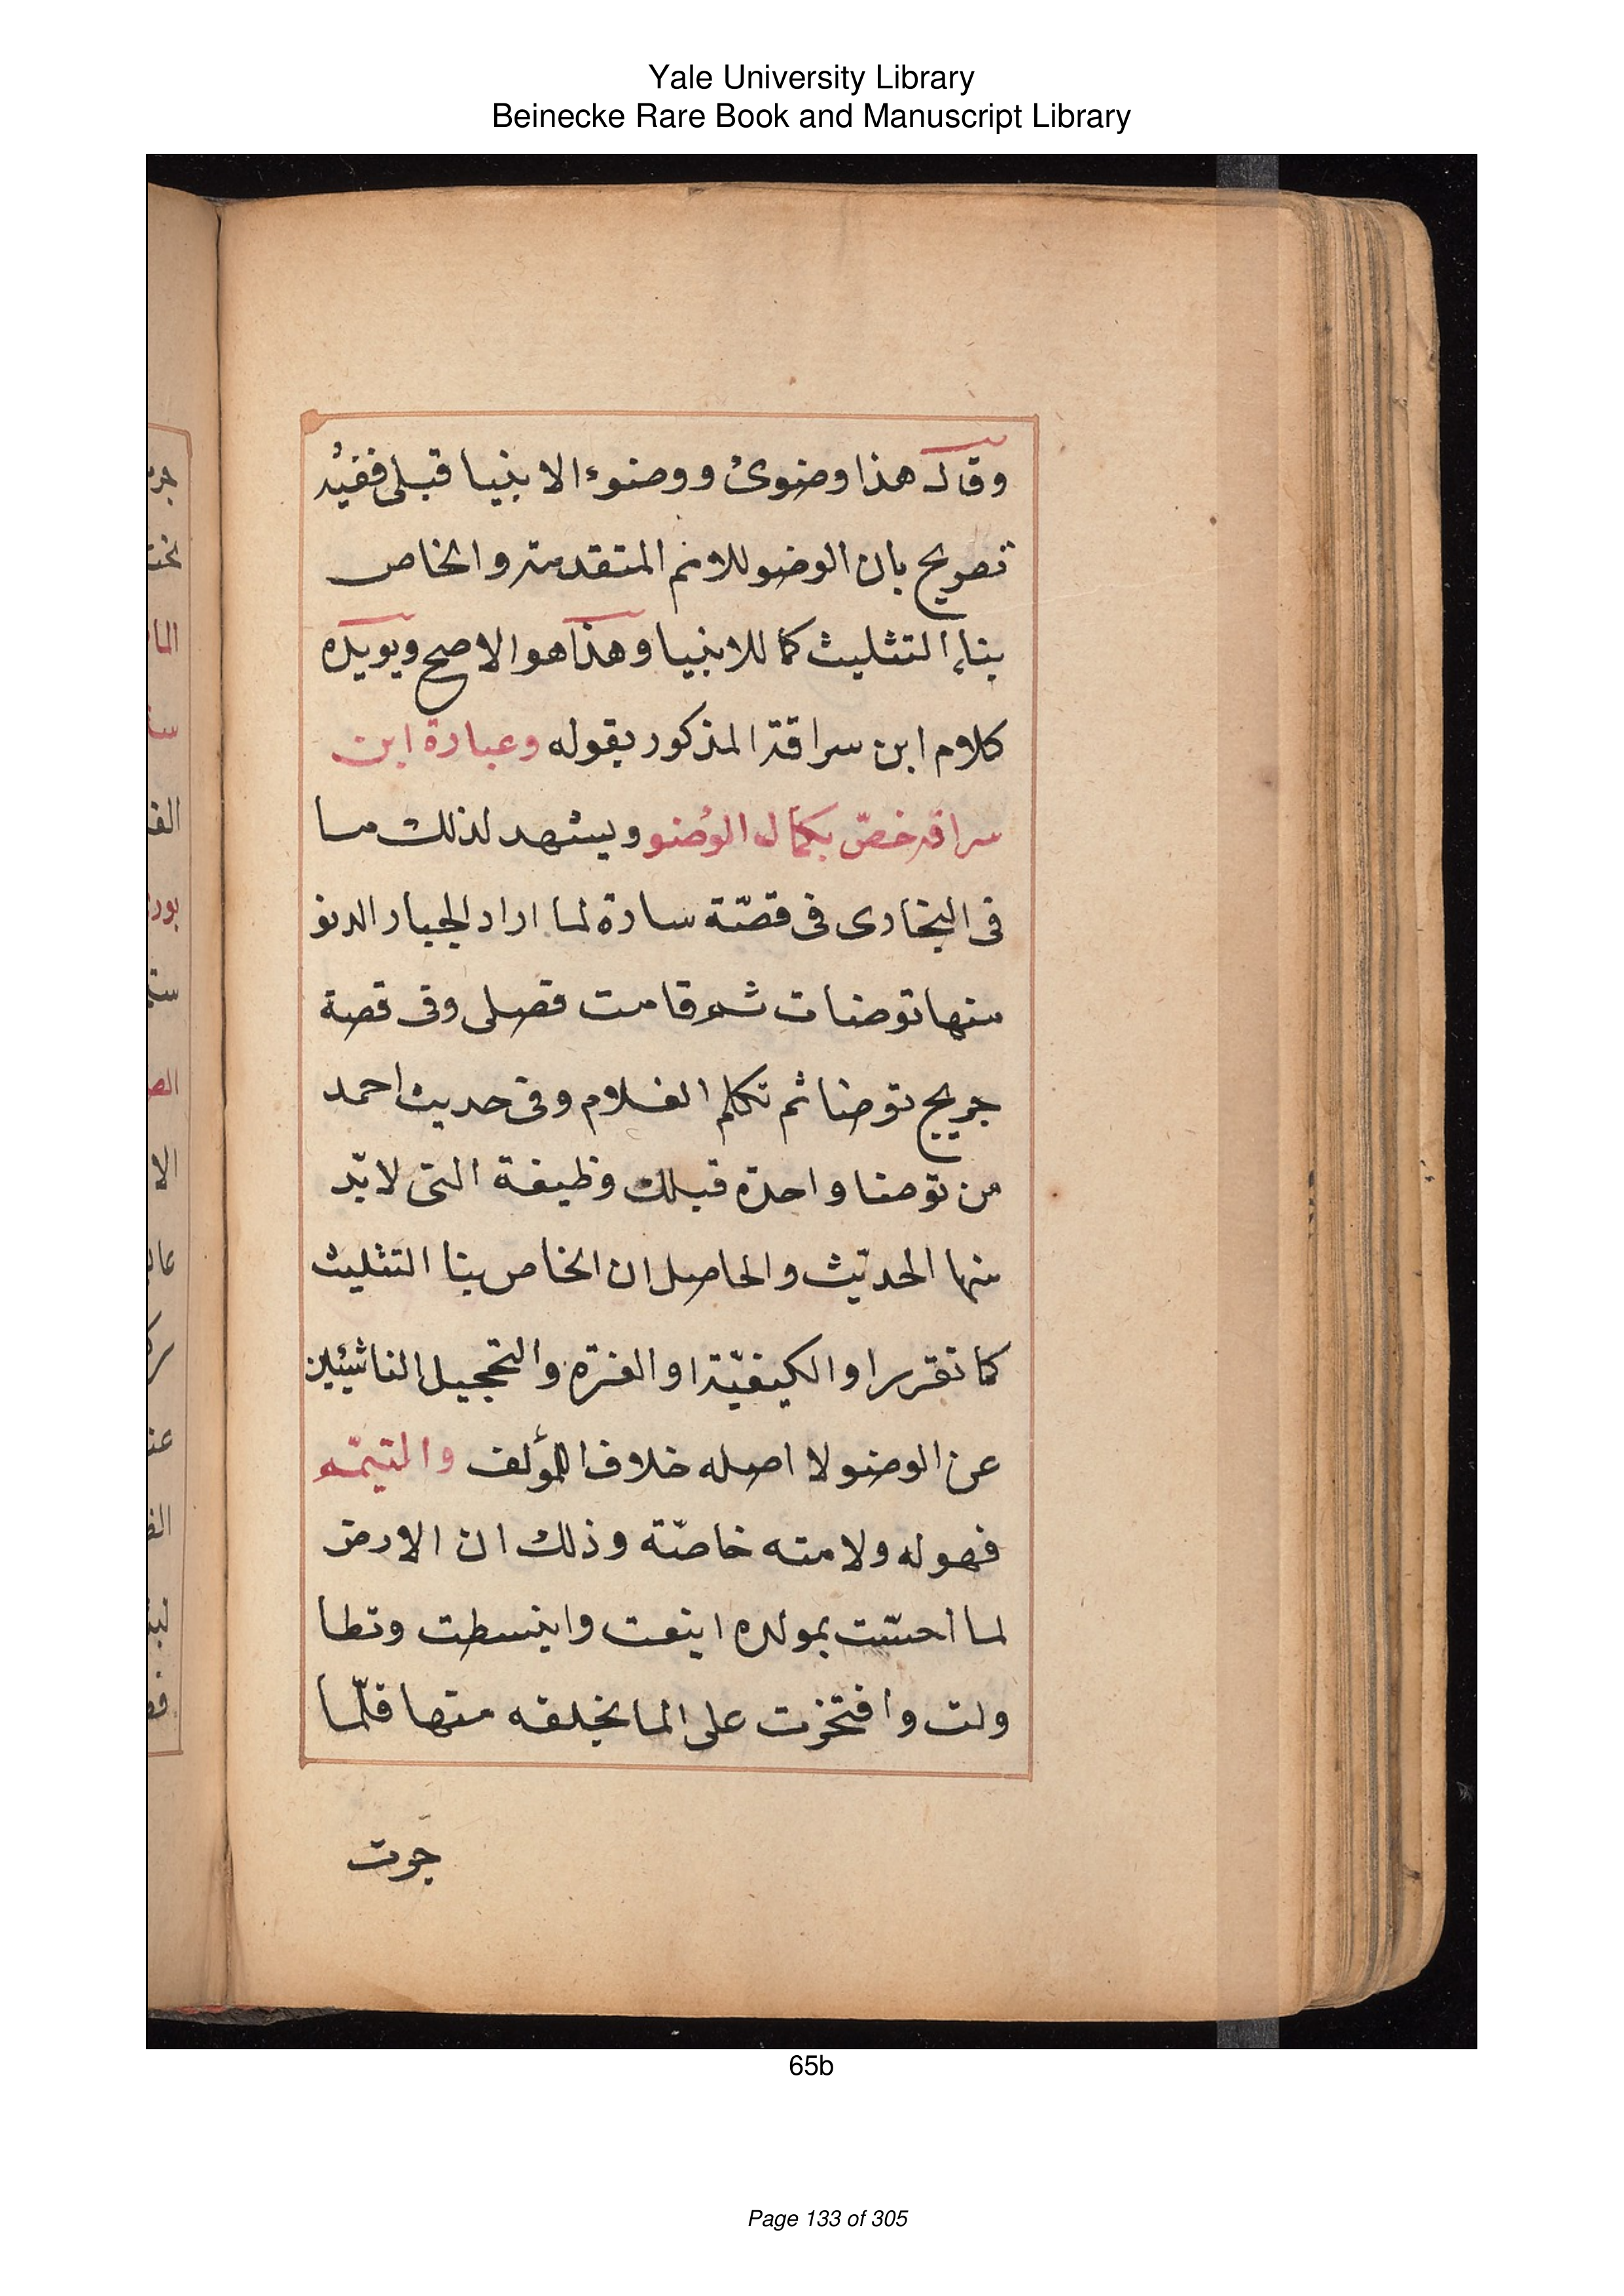 Yale University Library
Beinecke Rare Book and Manuscript Library
وقال هذا وضوئ ووضوء الانبيا قبلى ففيه
تصريح بان الوضو للامم المتقدمة والخاص
بناء التثليث كما للانبيا وهذا هو الاصح ويويده
كلام ابن سراقة المذكور بقوله وعبارة ابن
سراقه خصّ بكمال الوضو ويشهد لذلك ما
فى البخارى فى قصّة سارة لما اراد الجبار الدنو
منها توضات ثم قامت تصلى وفى قصة
جريج توضا ثم تكلم الغلام وفى حديث احمد
من توضا واحدة فتلك وظيفة التى لا بدّ
منها الحديث والحاصل ان الخاص بنا التثليث
كما تقرر او الكيفيّة او الغرّة والتحجيل الناشيئين
عن الوضو لا اصله خلاف المؤلف والتيمّم
فهوله ولامته خاصّة وذلك ان الارض
لما احسّت بمولده اينعت وانبسطت وتطا
ولت وافتخرت على الما بخلقه منها فلّما
جرت
65b
Page 133 of 305